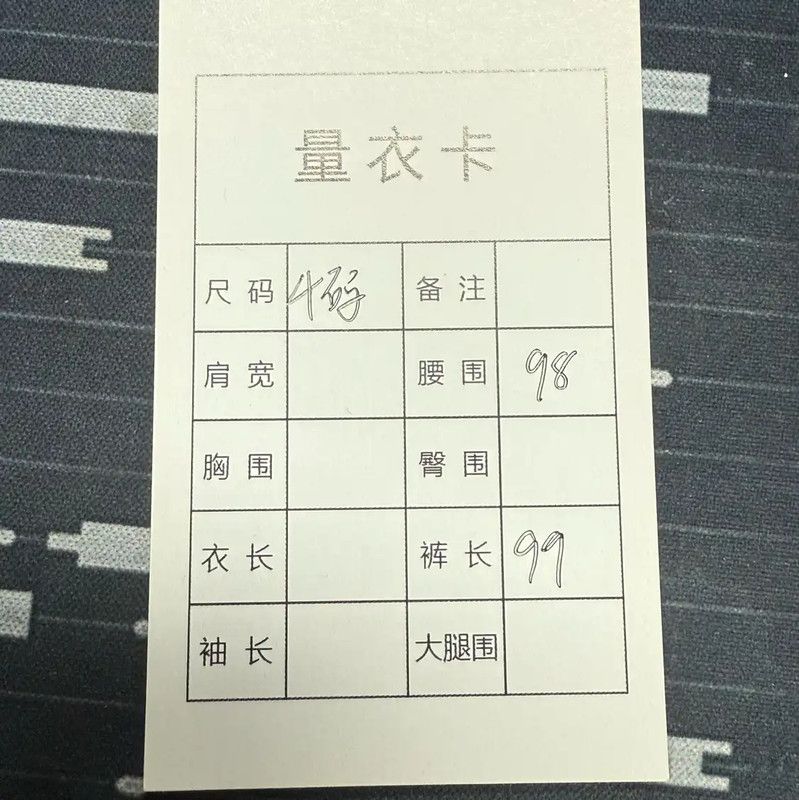 量衣卡
尺码 4码 备注
肩宽 腰围 98
胸围 臀围
衣长 裤长 99
袖长 大腿围